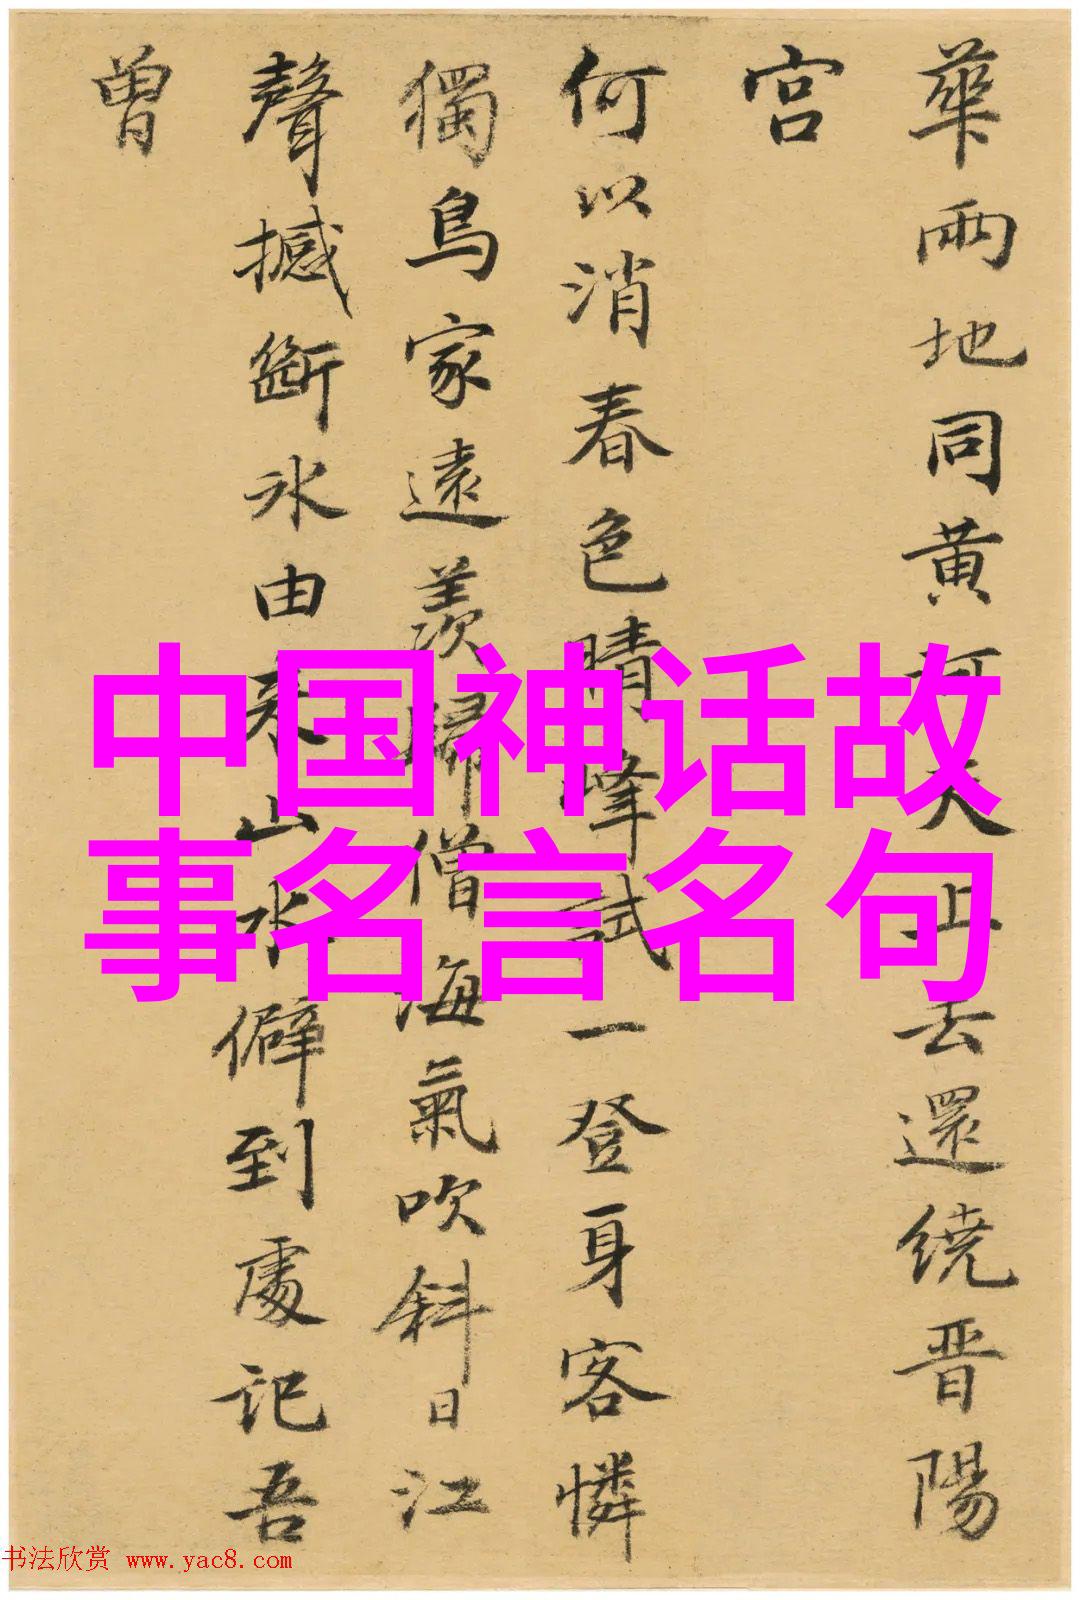 華兩地同黄河天上去還绕晋陽
宫
何以消春色晴峰試一登身客憐
獨鳥家遠羨歸僧海氣吹斜日江
聲撼斷冰由来山水僻到處记吾
曾
中国神话故
事名言名句
书法欣赏 www.yac8.com